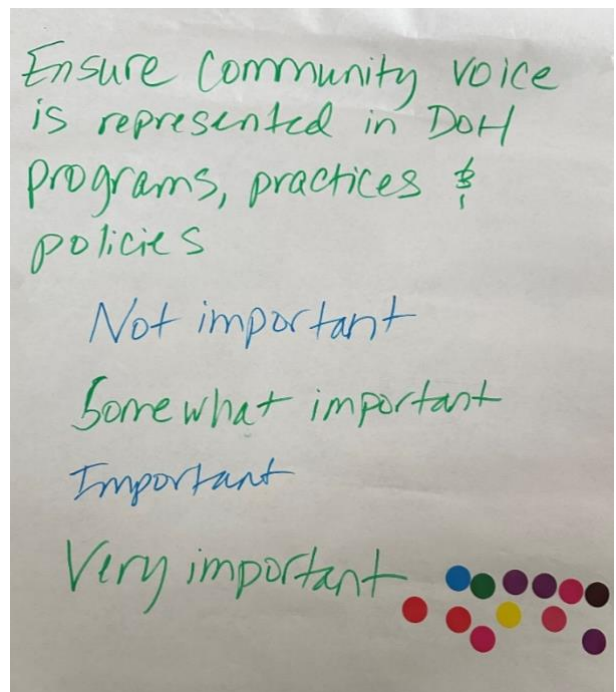 Ensure Community voice
is represented in DOH
programs, practices &
policies
Not important
Somewhat important
Important
Very important